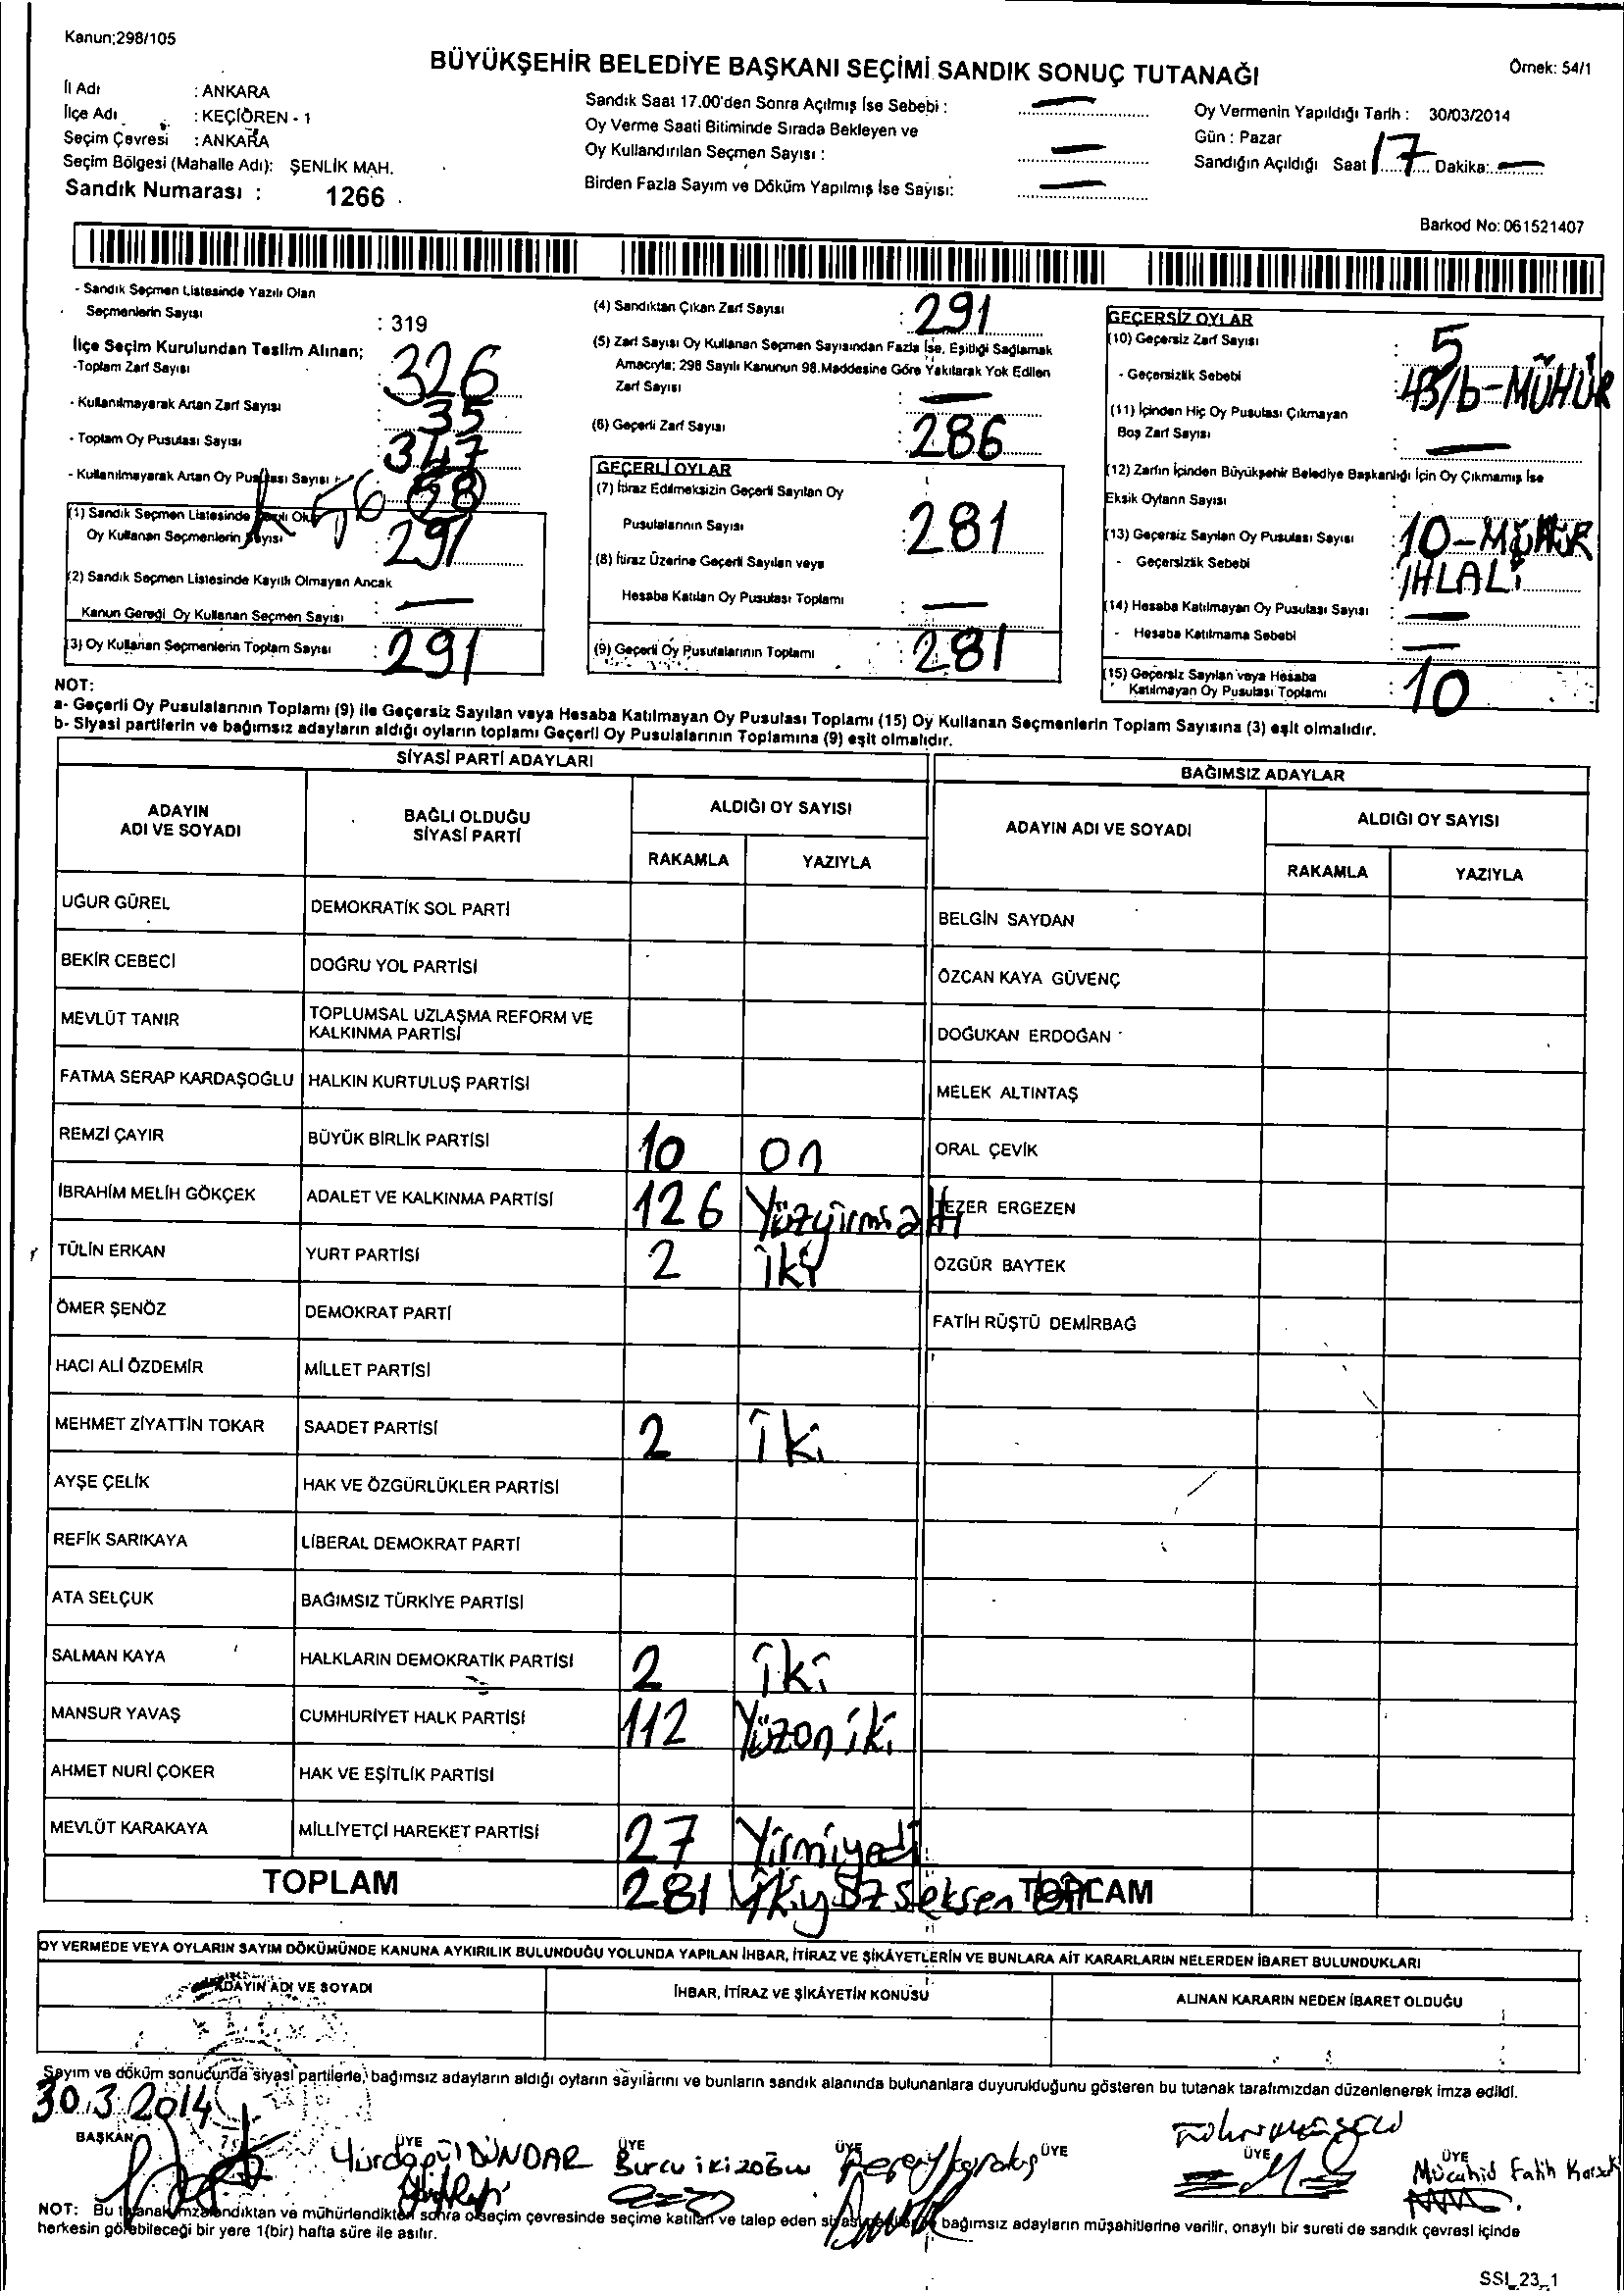 Kanun;298/105
BÜYÜKŞEHİR BELEDİYE BAŞKANI SEÇİMİ SANDIK SONUÇ TUTANAĞI
Örnek: 54/1
İl Adı : ANKARA
İlçe Adı : KEÇİÖREN - 1
Seçim Çevresi : ANKARA
Seçim Bölgesi (Mahalle Adı): ŞENLİK MAH.
Sandık Numarası : 1266
Sandık Saat 17.00'den Sonra Açılmış İse Sebebi : —
Oy Verme Saati Bitiminde Sırada Bekleyen ve
Oy Kullandırılan Seçmen Sayısı : —
Birden Fazla Sayım ve Döküm Yapılmış İse Sayısı: —
Oy Vermenin Yapıldığı Tarih : 30/03/2014
Gün : Pazar
Sandığın Açıldığı Saat 17 Dakika: —
Barkod No: 061521407
- Sandık Seçmen Listesinde Yazılı Olan
Seçmenlerin Sayısı : 319
İlçe Seçim Kurulundan Teslim Alınan;
-Toplam Zarf Sayısı : 326
- Kullanılmayarak Artan Zarf Sayısı : 35
- Toplam Oy Pusulası Sayısı : 347
- Kullanılmayarak Artan Oy Pusulası Sayısı : 56
(1) Sandık Seçmen Listesinde Yazılı Olup
Oy Kullanan Seçmenlerin Sayısı : 291
(2) Sandık Seçmen Listesinde Kayıtlı Olmayan Ancak
Kanun Gereği Oy Kullanan Seçmen Sayısı : —
(3) Oy Kullanan Seçmenlerin Toplam Sayısı : 291
(4) Sandıktan Çıkan Zarf Sayısı : 291
(5) Zarf Sayısı Oy Kullanan Seçmen Sayısından Fazla İse, Eşitliği Sağlamak
Amacıyla; 298 Sayılı Kanunun 98.Maddesine Göre Yakılarak Yok Edilen
Zarf Sayısı : —
(6) Geçerli Zarf Sayısı : 286
GEÇERLİ OYLAR
(7) İtiraz Edilmeksizin Geçerli Sayılan Oy
Pusulalarının Sayısı : 281
(8) İtiraz Üzerine Geçerli Sayılan veya
Hesaba Katılan Oy Pusulası Toplamı : —
(9) Geçerli Oy Pusulalarının Toplamı : 281
GEÇERSİZ OYLAR
(10) Geçersiz Zarf Sayısı : 5
- Geçersizlik Sebebi : 43/b-MÜHÜR
(11) İçinden Hiç Oy Pusulası Çıkmayan
Boş Zarf Sayısı : —
(12) Zarfın İçinden Büyükşehir Belediye Başkanlığı İçin Oy Çıkmamış İse
Eksik Oyların Sayısı
(13) Geçersiz Sayılan Oy Pusulası Sayısı : 10-MÜHÜR
- Geçersizlik Sebebi : İHLALİ
(14) Hesaba Katılmayan Oy Pusulası Sayısı : —
- Hesaba Katılmama Sebebi : —
(15) Geçersiz Sayılan veya Hesaba
Katılmayan Oy Pusulası Toplamı : 10
NOT:
a- Geçerli Oy Pusulalarının Toplamı (9) ile Geçersiz Sayılan veya Hesaba Katılmayan Oy Pusulası Toplamı (15) Oy Kullanan Seçmenlerin Toplam Sayısına (3) eşit olmalıdır.
b- Siyasi partilerin ve bağımsız adayların aldığı oyların toplamı Geçerli Oy Pusulalarının Toplamına (9) eşit olmalıdır.
SİYASİ PARTİ ADAYLARI
BAĞIMSIZ ADAYLAR
ADAYIN ADI VE SOYADI
BAĞLI OLDUĞU SİYASİ PARTİ
ALDIĞI OY SAYISI
RAKAMLA YAZIYLA
ADAYIN ADI VE SOYADI
ALDIĞI OY SAYISI
RAKAMLA YAZIYLA
UĞUR GÜREL DEMOKRATİK SOL PARTİ BELGİN SAYDAN
BEKİR CEBECİ DOĞRU YOL PARTİSİ ÖZCAN KAYA GÜVENÇ
MEVLÜT TANIR TOPLUMSAL UZLAŞMA REFORM VE KALKINMA PARTİSİ DOĞUKAN ERDOĞAN
FATMA SERAP KARDAŞOĞLU HALKIN KURTULUŞ PARTİSİ MELEK ALTINTAŞ
REMZİ ÇAYIR BÜYÜK BİRLİK PARTİSİ 10 On ORAL ÇEVİK
İBRAHİM MELİH GÖKÇEK ADALET VE KALKINMA PARTİSİ 126 Yüzyirmialtı TEZER ERGEZEN
TÜLİN ERKAN YURT PARTİSİ 2 İki ÖZGÜR BAYTEK
ÖMER ŞENÖZ DEMOKRAT PARTİ FATİH RÜŞTÜ DEMİRBAĞ
HACI ALİ ÖZDEMİR MİLLET PARTİSİ
MEHMET ZİYATTİN TOKAR SAADET PARTİSİ 2 İki
AYŞE ÇELİK HAK VE ÖZGÜRLÜKLER PARTİSİ
REFİK SARIKAYA LİBERAL DEMOKRAT PARTİ
ATA SELÇUK BAĞIMSIZ TÜRKİYE PARTİSİ
SALMAN KAYA HALKLARIN DEMOKRATİK PARTİSİ 2 İki
MANSUR YAVAŞ CUMHURİYET HALK PARTİSİ 112 Yüzoniki
AHMET NURİ ÇOKER HAK VE EŞİTLİK PARTİSİ
MEVLÜT KARAKAYA MİLLİYETÇİ HAREKET PARTİSİ 27 Yirmiyedi
TOPLAM 281 İkiyüzseksen TOPLAM
OY VERMEDE VEYA OYLARIN SAYIM DÖKÜMÜNDE KANUNA AYKIRILIK BULUNDUĞU YOLUNDA YAPILAN İHBAR, İTİRAZ VE ŞİKÂYETLERİN VE BUNLARA AİT KARARLARIN NELERDEN İBARET BULUNDUKLARI
ADAYIN ADI VE SOYADI İHBAR, İTİRAZ VE ŞİKÂYETİN KONUSU ALINAN KARARIN NEDEN İBARET OLDUĞU
Sayım ve döküm sonucunda siyasi partilerle, bağımsız adayların aldığı oyların sayılarını ve bunların sandık alanında bulunanlara duyurulduğunu gösteren bu tutanak tarafımızdan düzenlenerek imza edildi.
30.3.2014
BAŞKAN ÜYE ÜYE ÜYE ÜYE ÜYE ÜYE
Yurdagül DÜNDAR Burcu İkizoğlu Mücahid Fatih
NOT: Bu tutanak imzalandıktan ve mühürlendikten sonra o seçim çevresinde seçime katılan ve talep eden siyasi partiler ve bağımsız adayların müşahitlerine verilir, onaylı bir sureti de sandık çevresi içinde
herkesin görebileceği bir yere 1(bir) hafta süre ile asılır.
SSI_23_1